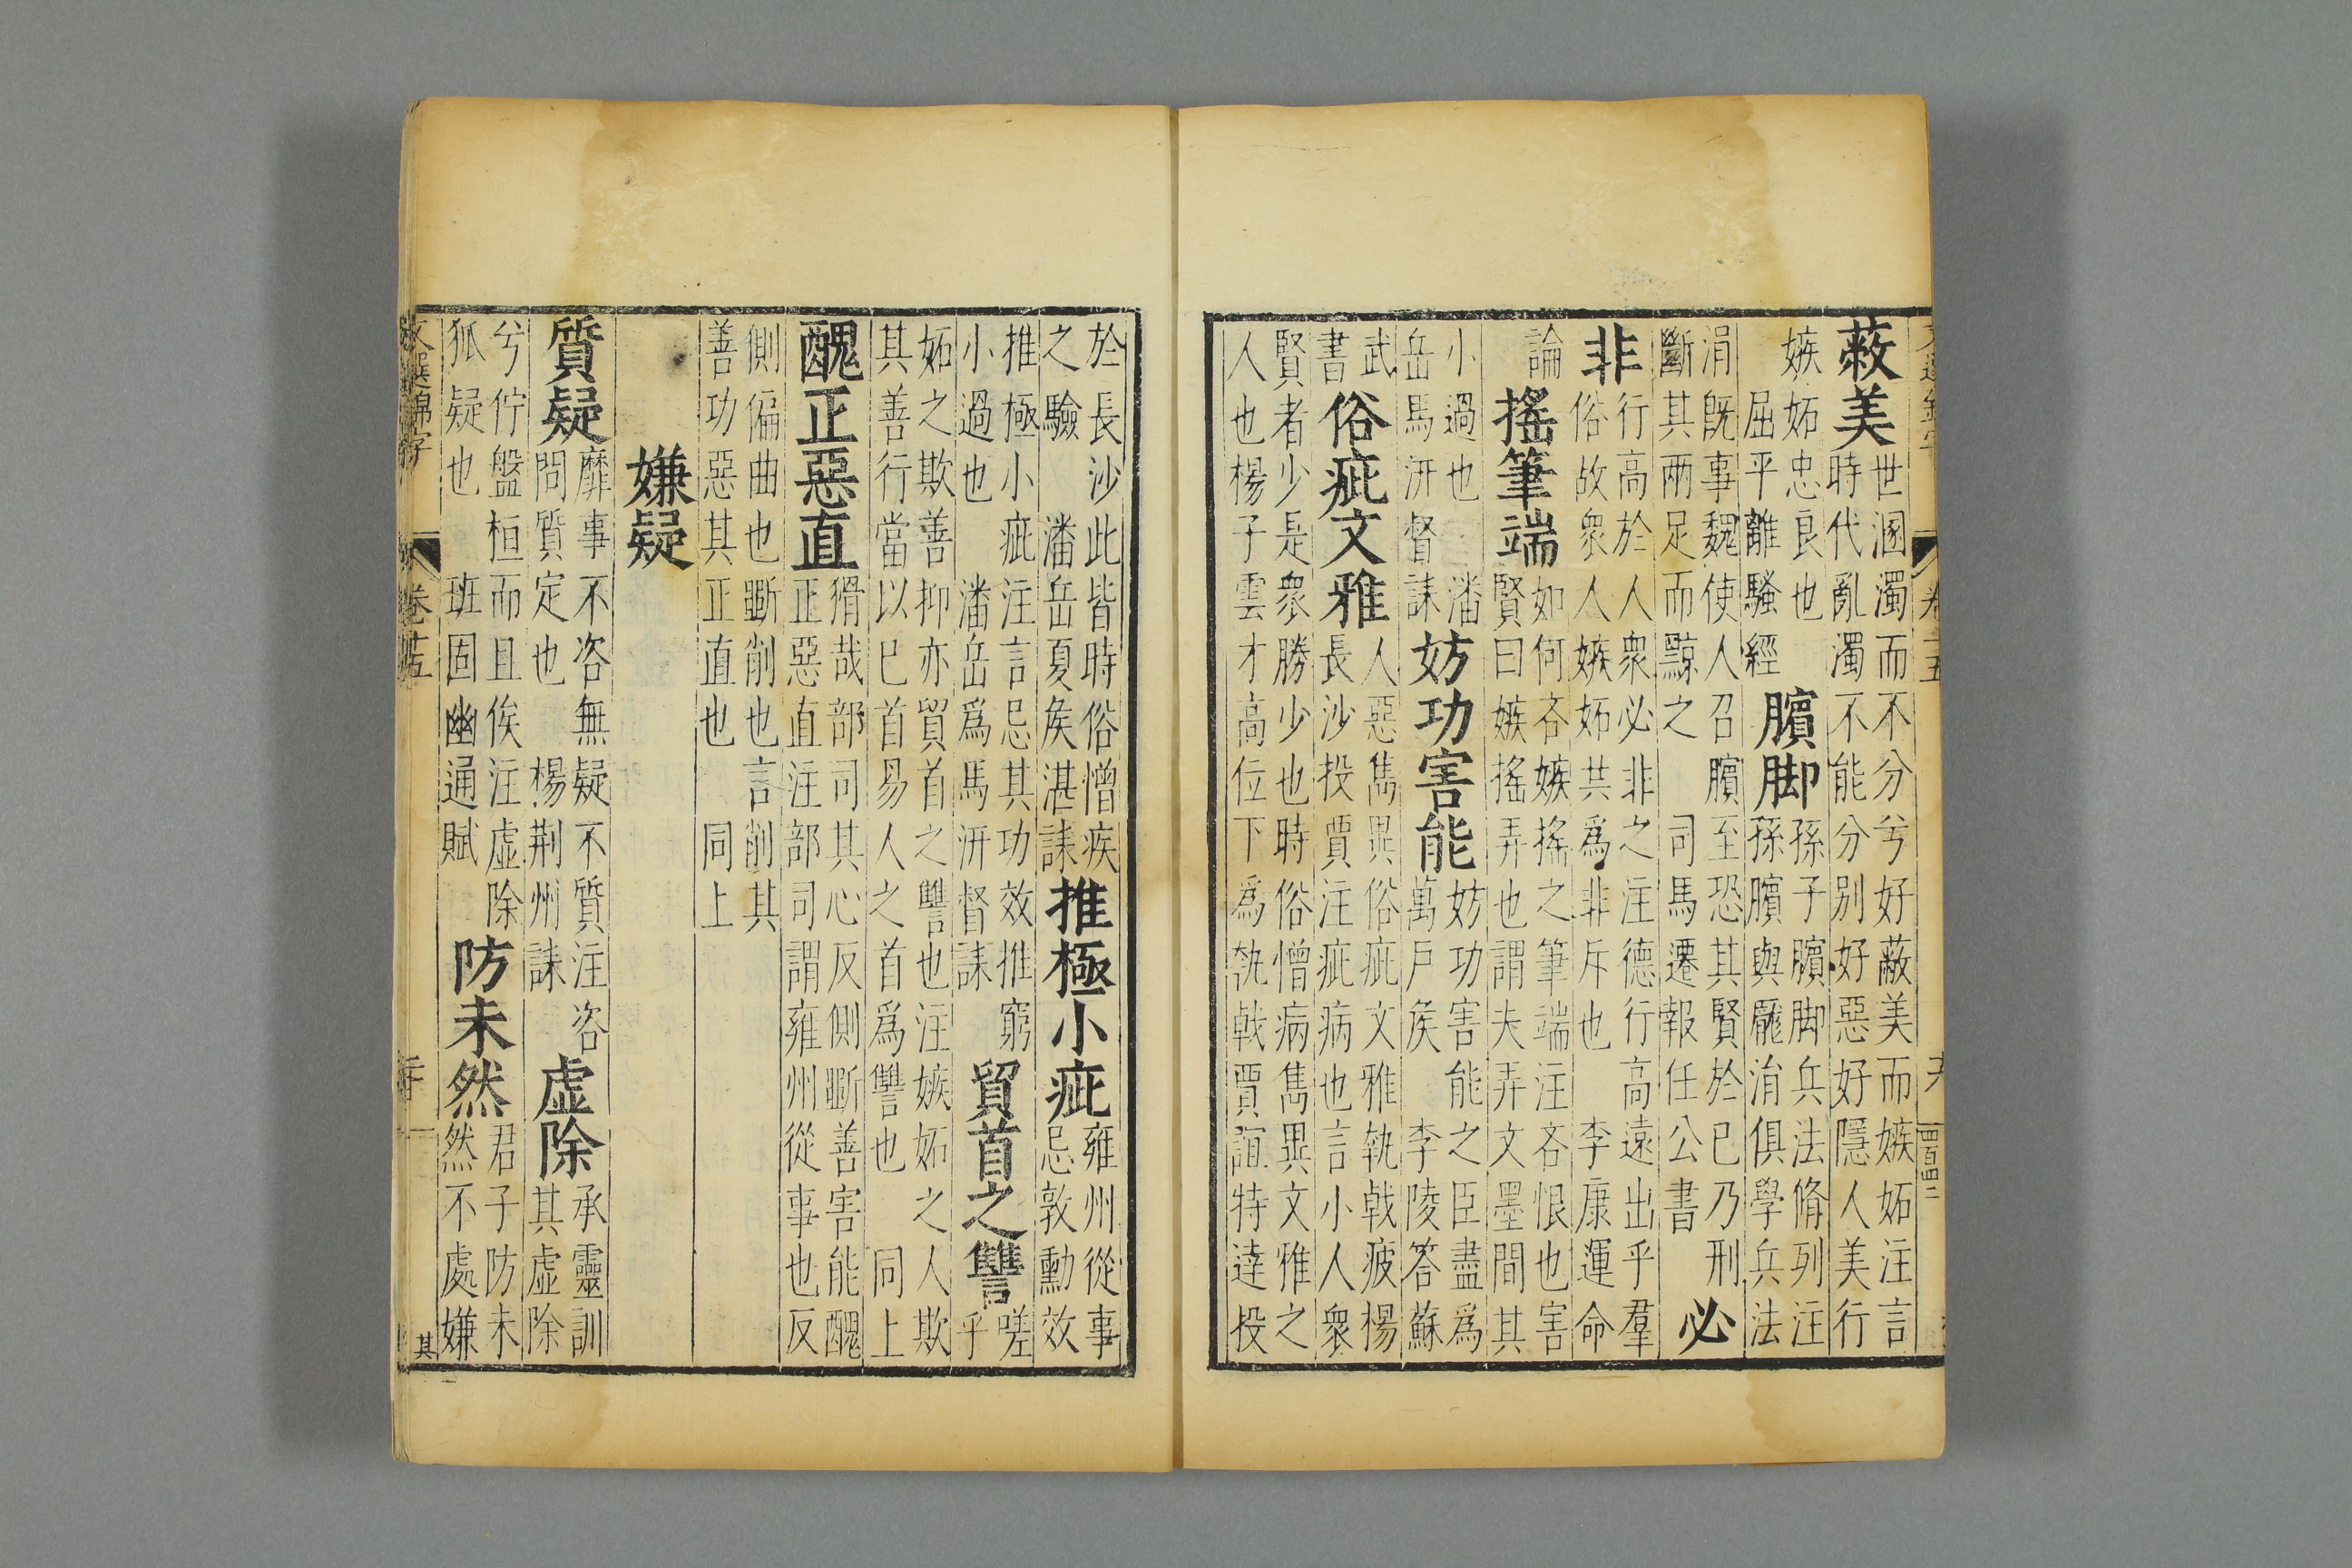 文選錦字 卷十五
蔽美
世溷濁而不分兮好蔽美而嫉妬注言
時代亂濁不能分別好惡好隱人美行
嫉妬忠良也
屈平離騷經
臏脚
孫子臏脚兵法脩列注
孫臏與龐涓俱學兵法
涓既事魏使人召臏至恐其賢於已乃刑
斷其兩足而黥之 司馬遷報任公書
必
非
行高於人衆必非之注德行高遠出乎羣
俗故衆人嫉妬共爲非斥也 李康運命
論
搖筆端
如何吝嫉搖之筆端注吝恨也害
賢曰嫉搖弄也謂夫弄文墨間其
小過也 潘
岳馬汧督誄
妨功害能
妨功害能之臣盡爲
萬戶矦 李陵答蘇
武
書
俗疵文雅
人惡雋異俗疵文雅執戟疲楊
長沙投賈注疵病也言小人衆
賢者少是衆勝少也時俗憎病雋異文雅之
人也楊子雲才高位下爲執戟賈誼特達投
於長沙此皆時俗憎疾
之驗 潘岳夏矦湛誄
推極小疵
雍州從事
忌敦勳效
推極小疵注言忌其功效推窮
小過也 潘岳爲馬汧督誄
貿首之讐
嗟
乎
妬之欺善抑亦貿首之讐也注嫉妬之人欺
其善行當以巳首易人之首爲讐也 同上
醜正惡直
猾哉部司其心反側斲善害能醜
正惡直注部司謂雍州從事也反
側偏曲也斲削也言削其
善功惡其正直也 同上
嫌疑
質疑
靡事不咨無疑不質注咨
問質定也 楊荆州誄
虚除
承靈訓
其虚除
兮佇盤桓而且俟注虚除
狐疑也 班固幽通賦
防未然
君子防未
然不處嫌
文選錦字 其